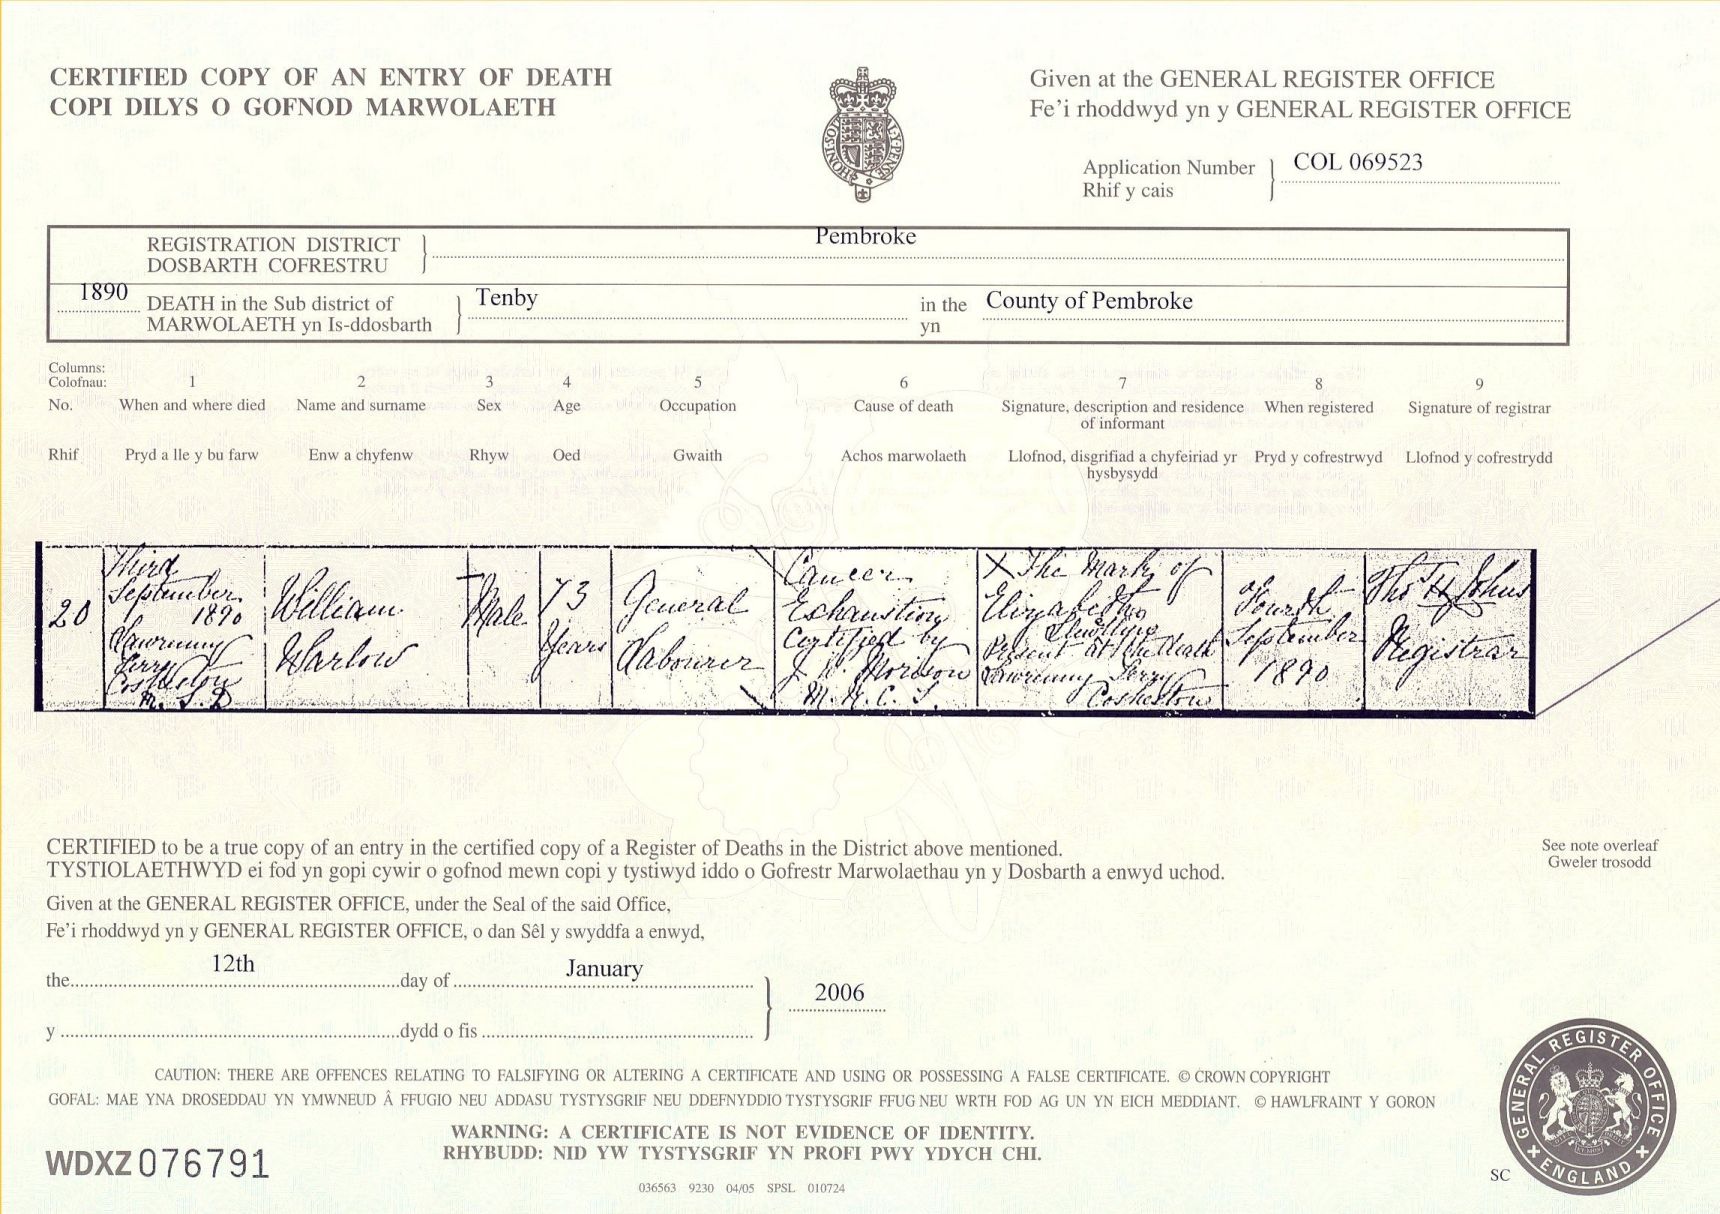 CERTIFIED COPY OF AN ENTRY OF DEATH
COPI DILYS O GOFNOD MARWOLAETH
Given at the GENERAL REGISTER OFFICE
Fe'i rhoddwyd yn y GENERAL REGISTER OFFICE
Application Number
Rhif y cais
COL 069523
REGISTRATION DISTRICT
DOSBARTH COFRESTRU
Pembroke
1890 DEATH in the Sub district of
MARWOLAETH yn Is-ddosbarth
Tenby
in the
yn
County of Pembroke
Columns:
Colofnau: 1 2 3 4 5 6 7 8 9
No. When and where died Name and surname Sex Age Occupation Cause of death Signature, description and residence of informant When registered Signature of registrar
Rhif Pryd a lle y bu farw Enw a chyfenw Rhyw Oed Gwaith Achos marwolaeth Llofnod, disgrifiad a chyfeiriad yr hysbysydd Pryd y cofrestrwyd Llofnod y cofrestrydd
20
Third
September
1890
Lawrenny
Ferry
Cosheston
William
Warlow
Male
73
Years
General
Labourer
Cancer
Exhaustion
Certified by
M.R.C.S.
X The mark of
Elizabeth
Llewellyn
Present at the death
Lawrenny Ferry
Cosheston
Fourth
September
1890
Thos H Johns
Registrar
CERTIFIED to be a true copy of an entry in the certified copy of a Register of Deaths in the District above mentioned.
TYSTIOLAETHWYD ei fod yn gopi cywir o gofnod mewn copi y tystiwyd iddo o Gofrestr Marwolaethau yn y Dosbarth a enwyd uchod.
See note overleaf
Gweler trosodd
Given at the GENERAL REGISTER OFFICE, under the Seal of the said Office,
Fe'i rhoddwyd yn y GENERAL REGISTER OFFICE, o dan Sêl y swyddfa a enwyd,
the 12th day of January
2006
y dydd o fis
CAUTION: THERE ARE OFFENCES RELATING TO FALSIFYING OR ALTERING A CERTIFICATE AND USING OR POSSESSING A FALSE CERTIFICATE. © CROWN COPYRIGHT
GOFAL: MAE YNA DROSEDDAU YN YMWNEUD Â FFUGIO NEU ADDASU TYSTYSGRIF NEU DDEFNYDDIO TYSTYSGRIF FFUG NEU WRTH FOD AG UN YN EICH MEDDIANT. © HAWLFRAINT Y GORON
WARNING: A CERTIFICATE IS NOT EVIDENCE OF IDENTITY.
RHYBUDD: NID YW TYSTYSGRIF YN PROFI PWY YDYCH CHI.
WDXZ 076791
036563 9230 04/05 SPSL 010724
SC
GENERAL REGISTER OFFICE
ENGLAND